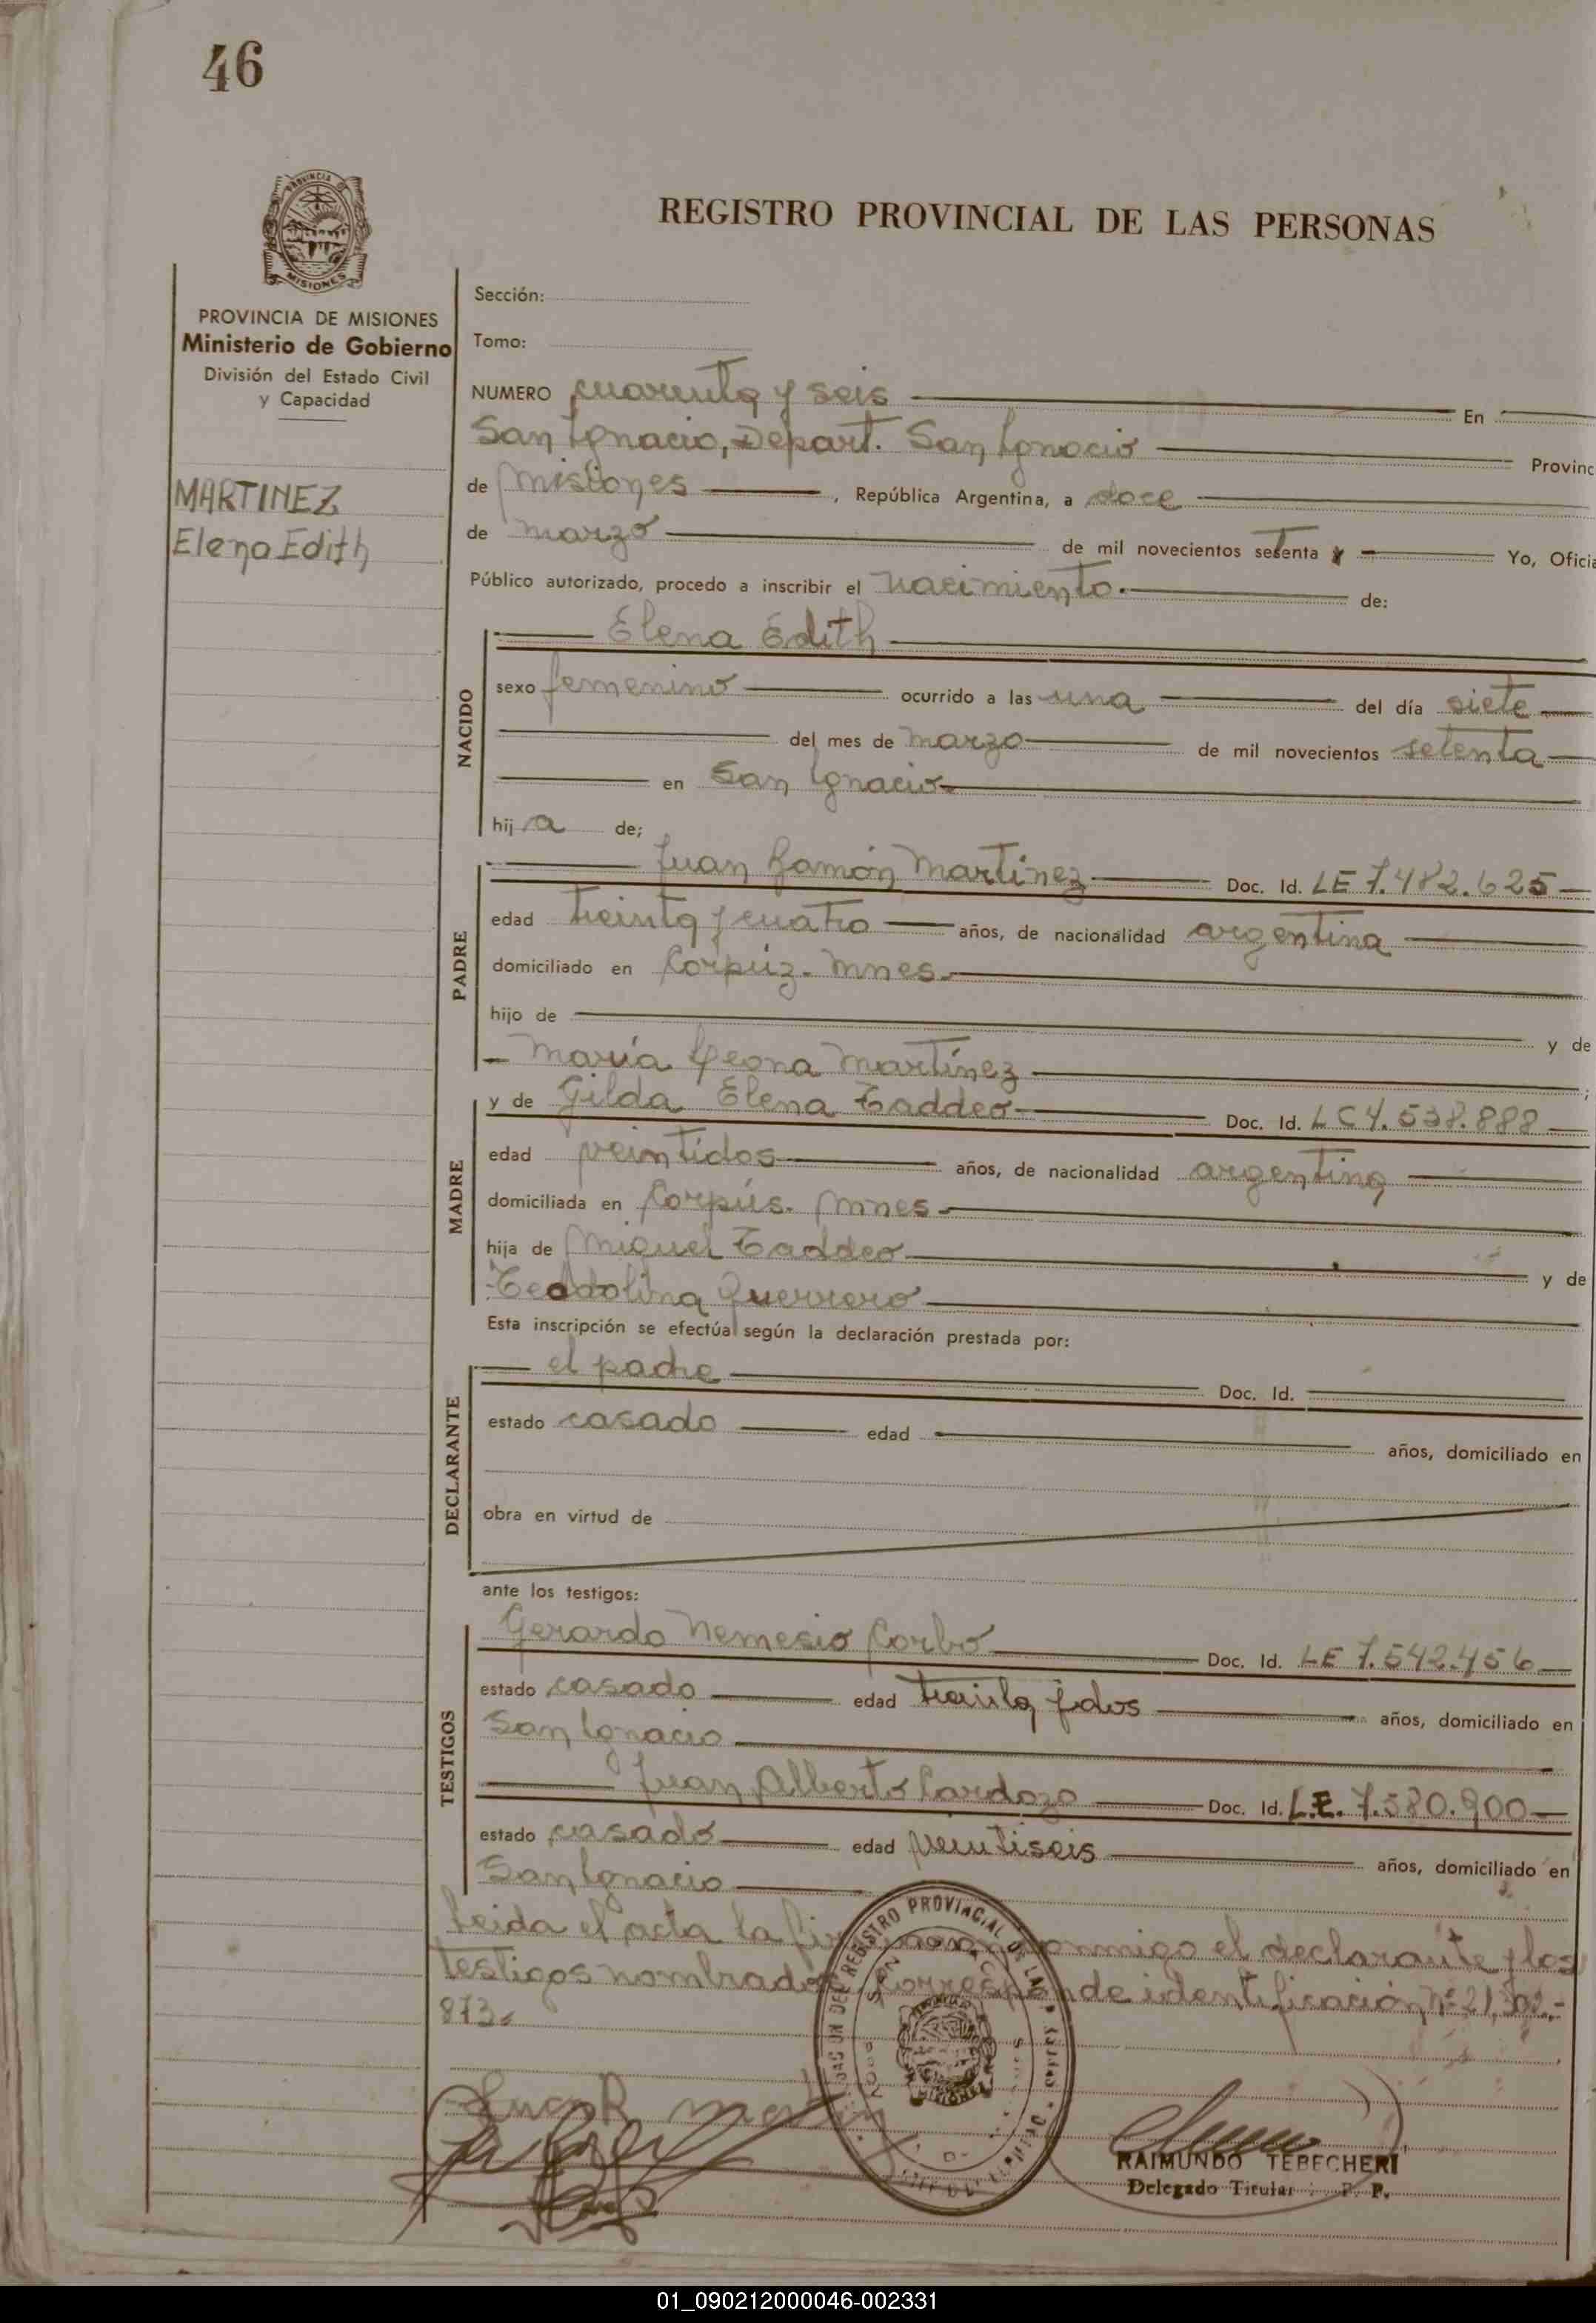 46
PROVINCIA
MISIONES
REGISTRO PROVINCIAL DE LAS PERSONAS
PROVINCIA DE MISIONES
Ministerio de Gobierno
División del Estado Civil
y Capacidad
MARTINEZ
Elena Edith
Sección:
Tomo:
NUMERO cuarenta y seis En
San Ignacio, Depart. San Ignacio Provinc
de Misiones , República Argentina, a doce
de marzo de mil novecientos setenta y Yo, Oficia
Público autorizado, procedo a inscribir el nacimiento. de:
NACIDO
Elena Edith
sexo femenino ocurrido a las una del día siete
del mes de marzo de mil novecientos setenta
en San Ignacio
hij a de;
PADRE
Juan Ramón Martinez Doc. Id. LE 7.482.625
edad treinta y cuatro años, de nacionalidad argentina
domiciliado en Corpúz. Mnes.
hijo de y de
María Leona Martínez ;
MADRE
y de Gilda Elena Taddeo Doc. Id. LC 4.538.888
edad veintidos años, de nacionalidad argentina
domiciliada en Corpús. Mnes.
hija de Miguel Taddeo y de
Teodolina Guerrero
Esta inscripción se efectúa según la declaración prestada por:
DECLARANTE
el padre Doc. Id.
estado casado edad años, domiciliado en
obra en virtud de
ante los testigos:
TESTIGOS
Gerardo Nemesio Corbo Doc. Id. LE 7.542.456
estado casado edad treinta y dos años, domiciliado en
San Ignacio
Juan Alberto Cardozo Doc. Id. L.E. 7.580.900
estado casado edad veintiseis años, domiciliado en
San Ignacio
Leida el acta la firman conmigo el declarante y los
testigos nombrados. Corresponde identificación, Nº 21,
873.
REGISTRO PROVINCIAL DE LA
MISIONES
Juan R Martinez
RAIMUNDO TEBECHERI
Delegado Titular R. P. P.
01_090212000046-002331